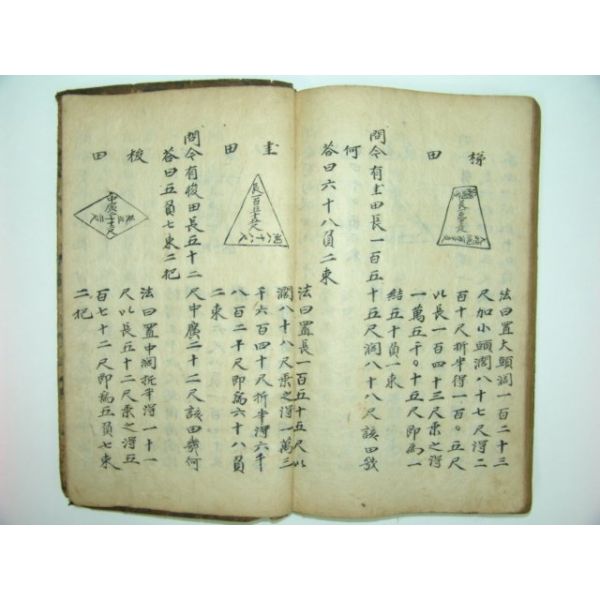 梯田
法曰置大頭濶一百二十三
尺加小頭濶八十七尺得二
百十尺折半得一百○五尺
以長一百四十三尺乘之得
一萬五千○十五尺即為一
結五十負一束
問今有圭田長一百五十五尺濶八十八尺該田幾
何
答曰六十八負二束
圭田
長一百五十五尺
法曰置長一百五十五尺以
濶八十八尺乘之得一萬三
千六百四十尺折半得六千
八百二十尺即為六十八負
二束
問今有梭田長五十二尺中廣二十二尺該田幾何
答曰五負七束二把
梭田
中廣二十二尺
法曰置中濶折半得一十一
尺以長五十二尺乘之得五
百七十二尺即為五負七束
二把